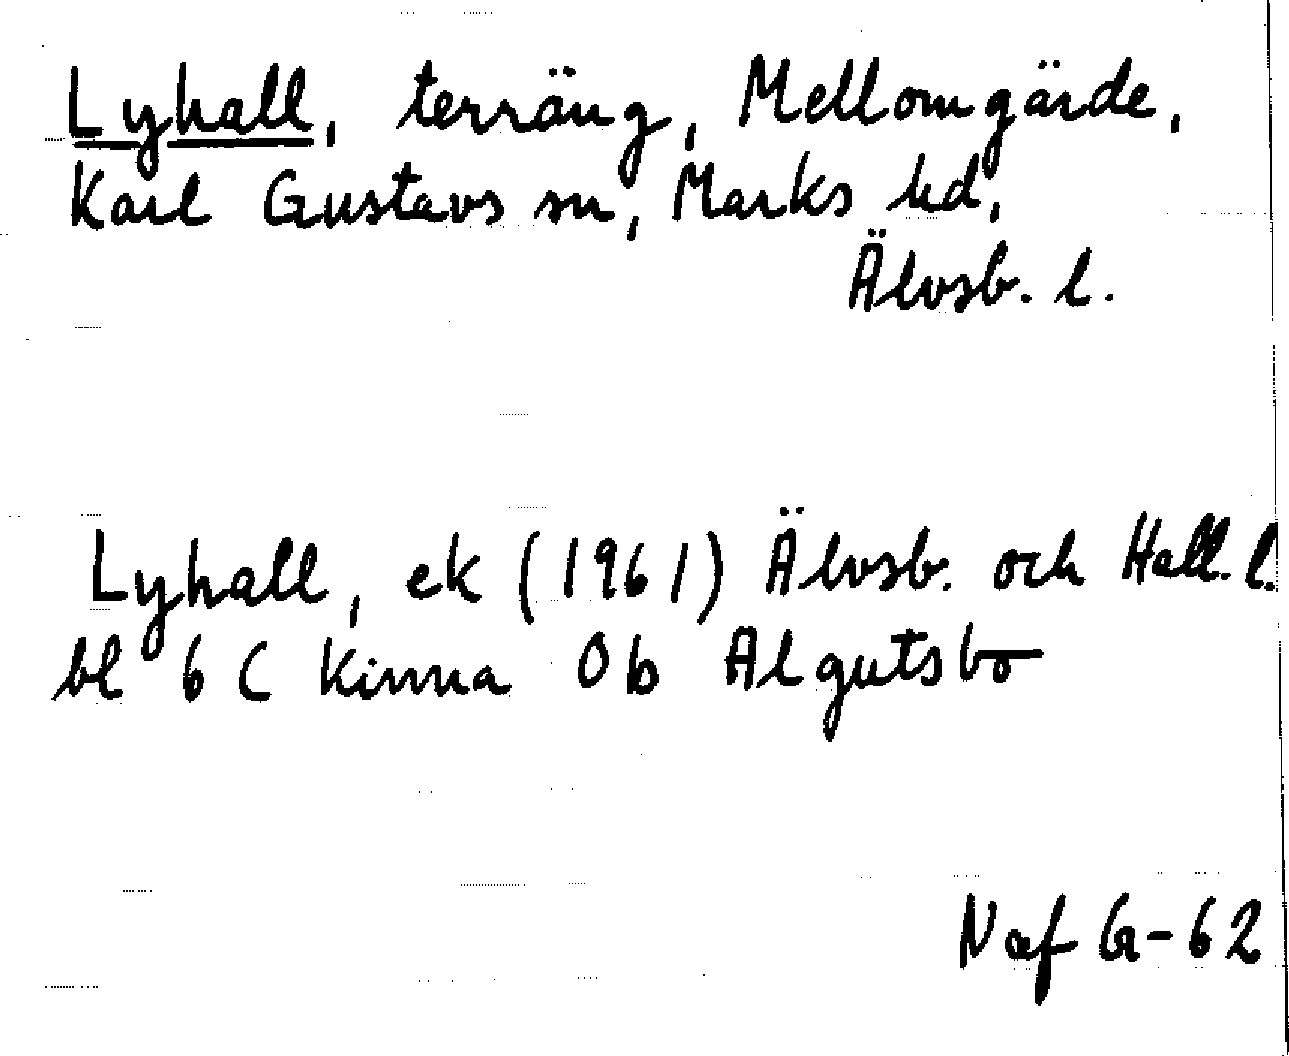 Lyhall, terräng, Mellomgärde,
Karl Gustavs sn, Marks hd,
Älvsb. l.
Lyhall, ek (1961) Älvsb. och Hall. l.
bl 6 C Kinna 0b Algutsbo
Naf G-62